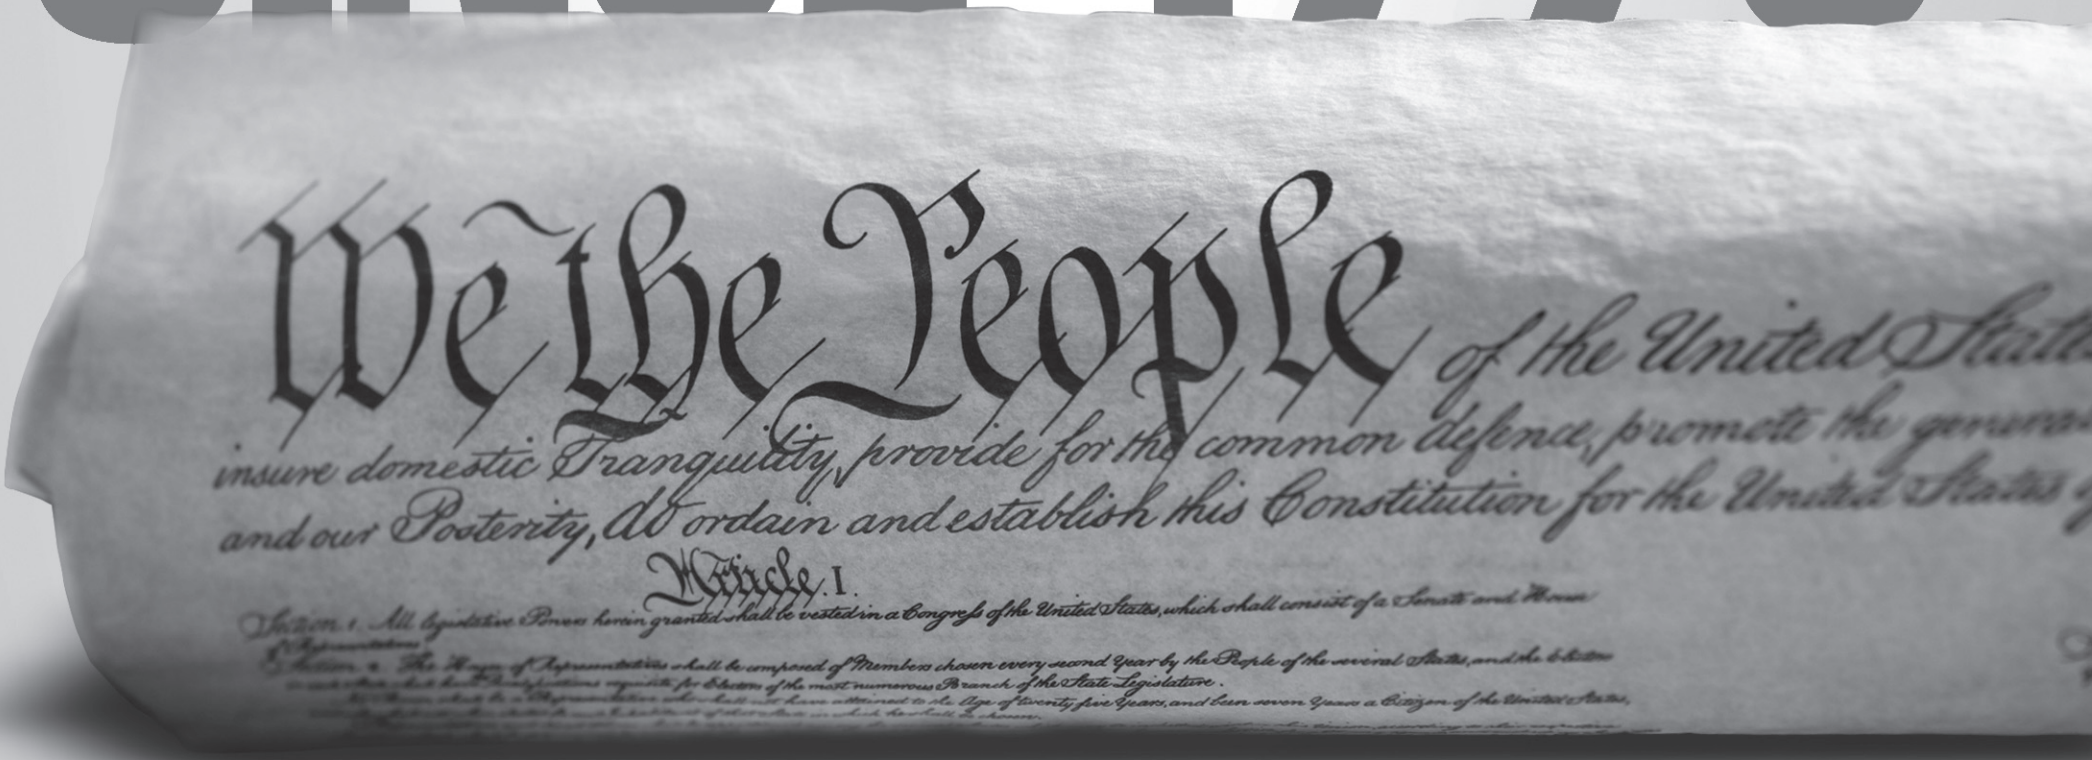 We the People of the United States
insure domestic Tranquility, provide for the common defence, promote the general
and our Posterity, do ordain and establish this Constitution for the United States
Article. I.
Section. 1. All legislative Powers herein granted shall be vested in a Congress of the United States, which shall consist of a Senate and House
of Representatives
Section. 2. The House of Representatives shall be composed of Members chosen every second Year by the People of the several States, and the Electors
requisite for Electors of the most numerous Branch of the State Legislature.
shall not have attained to the Age of twenty five Years, and been seven Years a Citizen of the United States,
in which he shall be chosen.